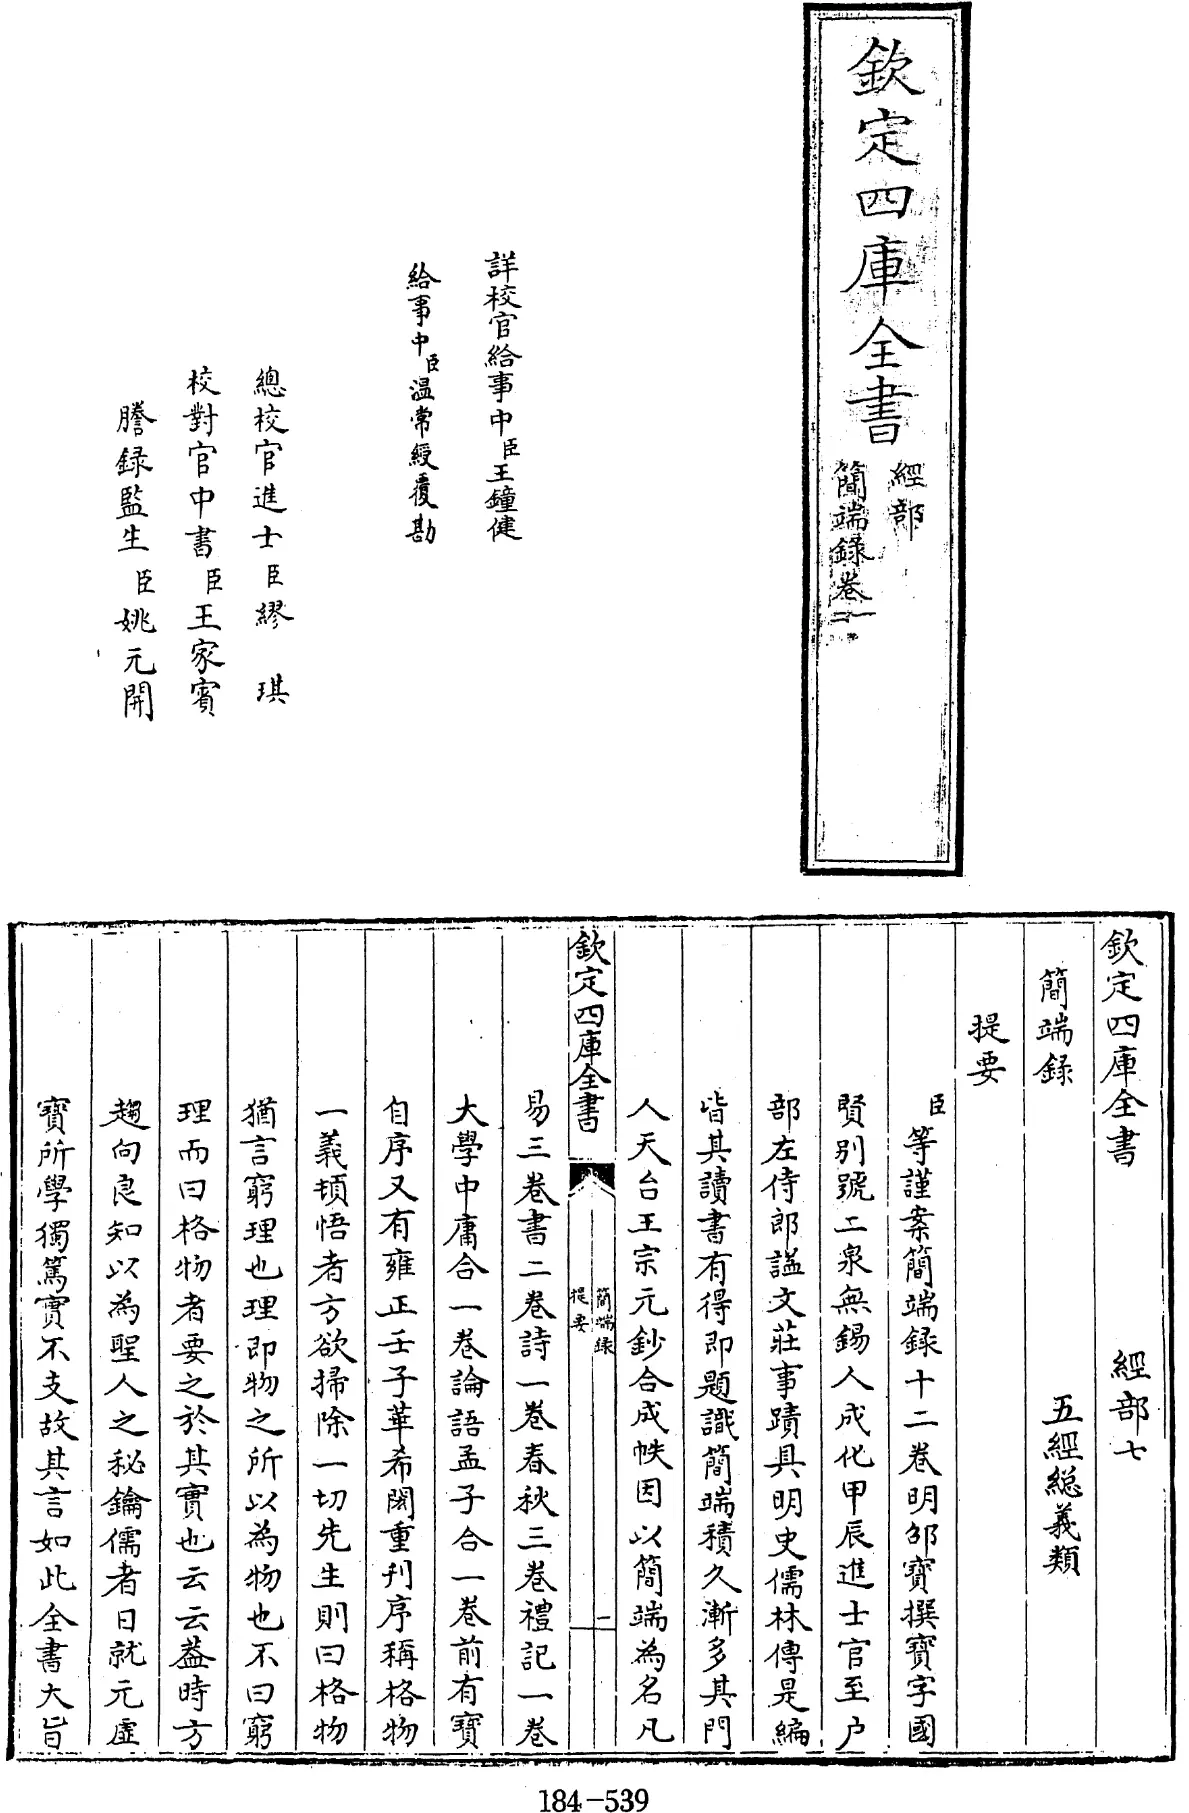 欽定四庫全書
經部
簡端錄卷一
詳校官給事中臣王鐘健
給事中臣溫常綬覆勘
總校官進士臣繆琪
校對官中書臣王家賓
謄錄監生臣姚元開
欽定四庫全書 經部七
簡端錄 五經總義類
提要
臣等謹案簡端錄十二卷明邵寶撰寶字國
賢別號二泉無錫人成化甲辰進士官至户
部左侍郎謚文莊事蹟具明史儒林傳是編
皆其讀書有得即題識簡端積久漸多其門
人天台王宗元鈔合成帙因以簡端為名凡
欽定四庫全書
簡端錄
提要
一
易三卷書二卷詩一卷春秋三卷禮記一卷
大學中庸合一卷論語孟子合一卷前有寶
自序又有雍正壬子華希閎重刊序稱格物
一義頓悟者方欲掃除一切先生則曰格物
猶言窮理也理即物之所以為物也不曰窮
理而曰格物者要之於其實也云云葢時方
趨向良知以為聖人之秘鑰儒者日就元虛
寶所學獨篤實不支故其言如此全書大旨
184-539